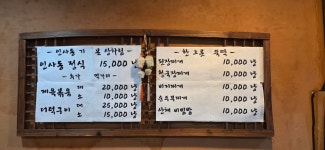 인사동 정식 15,000 냥
추가 먹거리
제육볶음 대 20,000 냥
소 10,000 냥
더덕구이 대 25,000 냥
소 15,000 냥
한 그릇 뚝딱
된장찌개 10,000 냥
청국장찌개 10,000 냥
비지찌개 10,000 냥
순두부찌개 10,000 냥
산채 비빔밥 10,000 냥